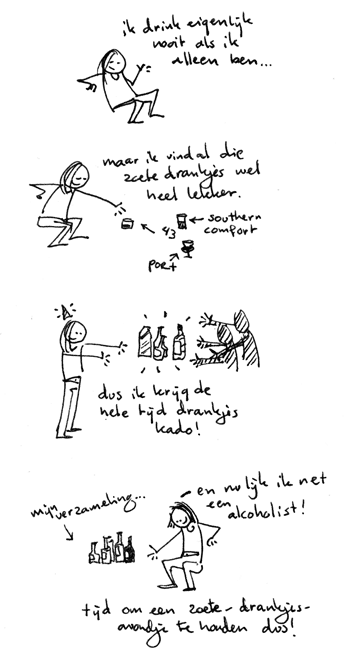 ik drink eigenlijk
nooit als ik
alleen ben...
maar ik vind al die
zoete drankjes wel
heel lekker.
southern
comfort
43
port
dus ik krijg de
hele tijd drankjes
kado!
mijn verzameling...
en nu lijk ik net
een
alcoholist!
tijd om een zoete-drankjes-
avondje te houden dus!